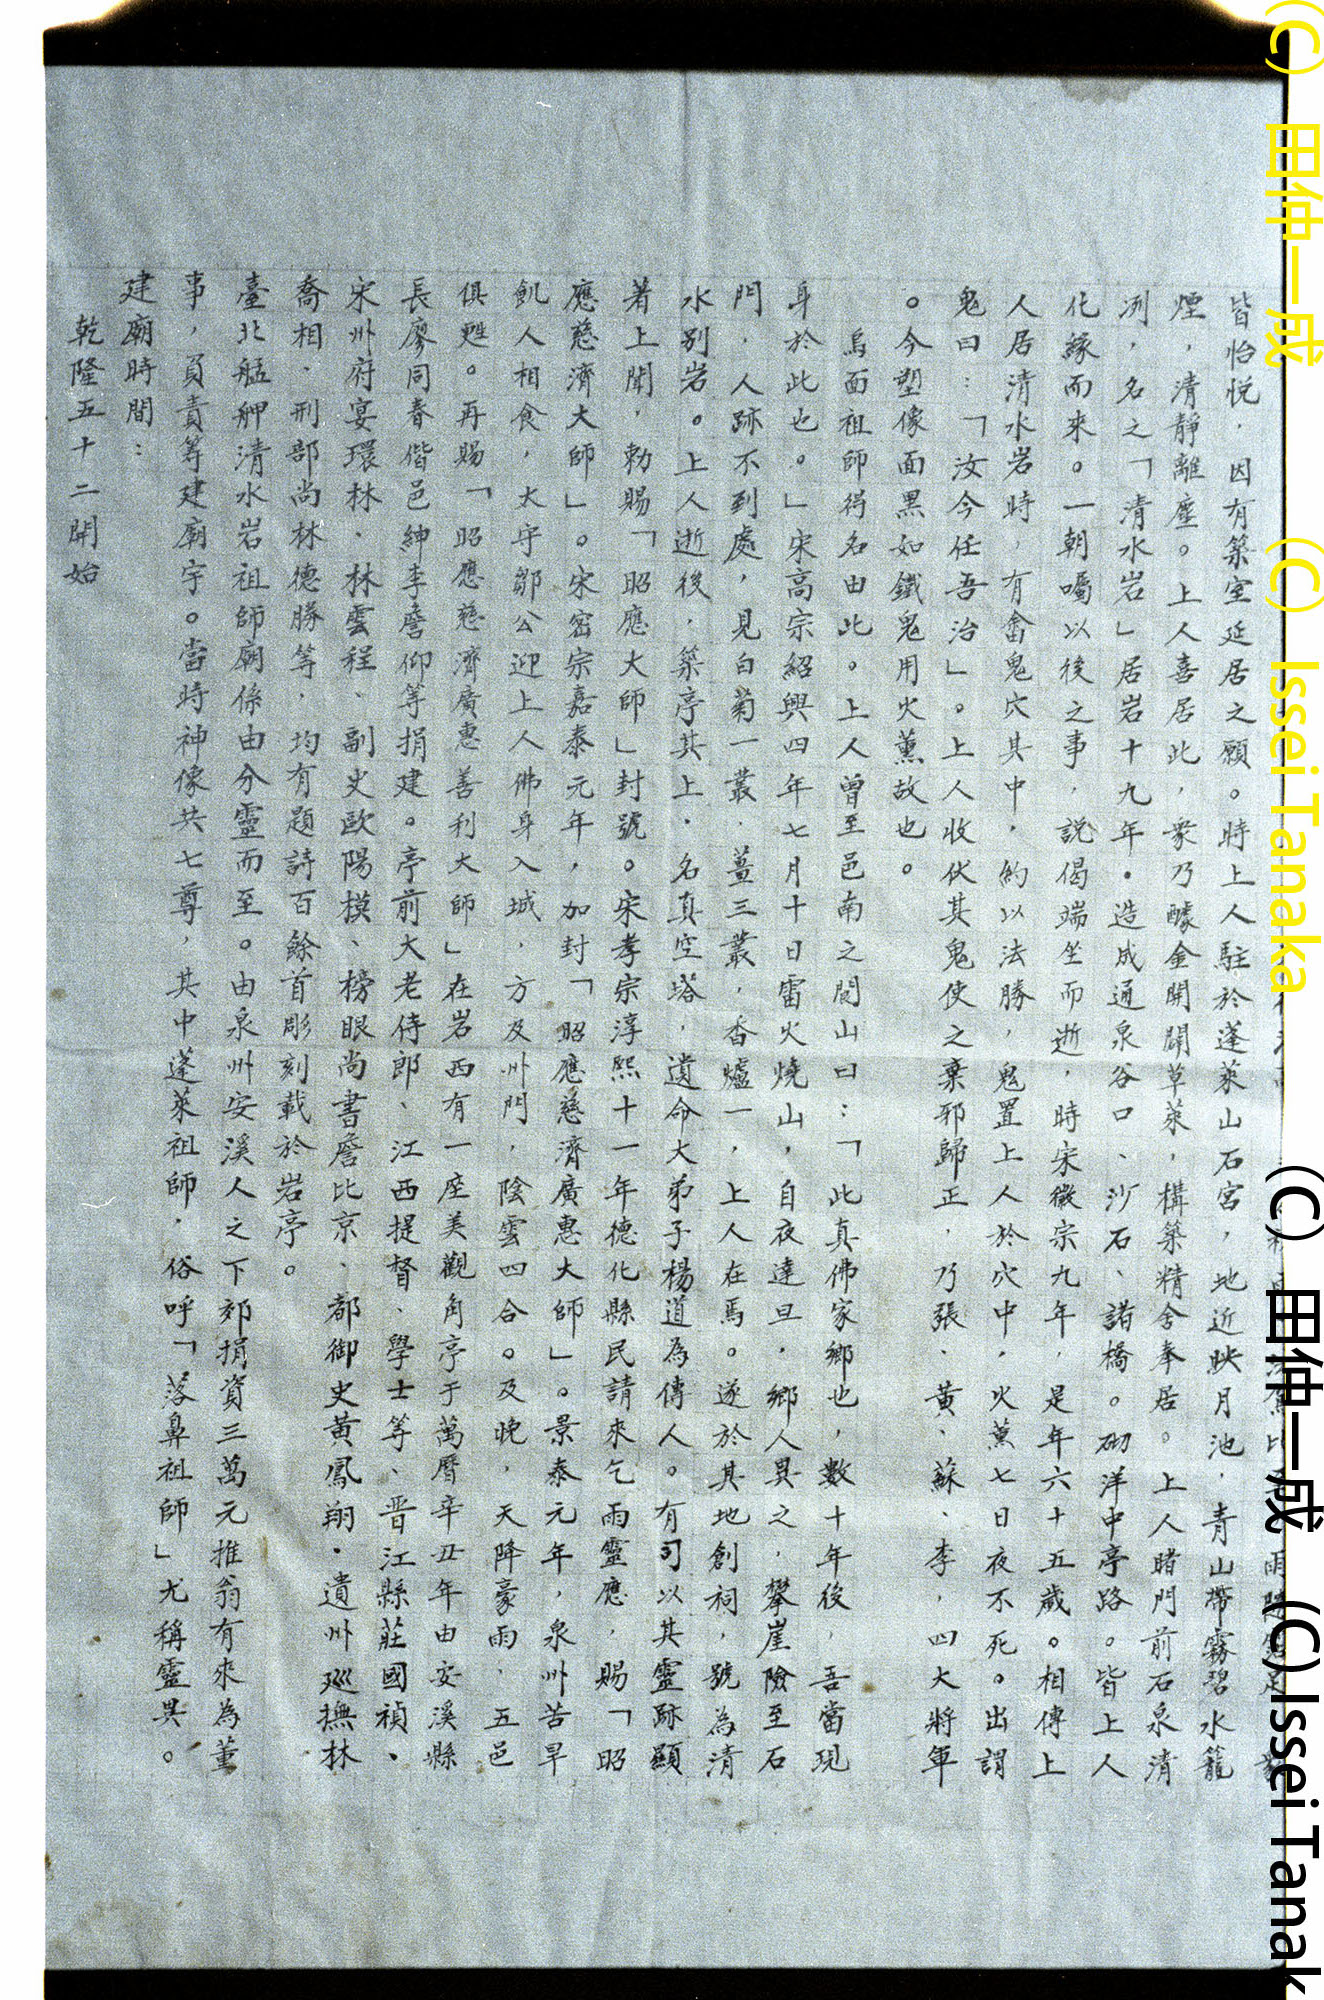 皆怡悅，因有築室延居之願。時上人駐於蓬萊山石宮，地近映月池，青山帶霧碧水籠
煙，清靜離塵。上人喜居此，衆乃醵金開闢草萊，構築精舍奉居。上人睹門前石泉清
冽，名之「清水岩」居岩十九年。造成通泉谷口、沙石、諸橋。砌洋中亭路。皆上人
化緣而來。一朝囑以後之事，說偈端坐而逝，時宋徽宗九年，是年六十五歲。相傳上
人居清水岩時，有畬鬼穴其中，約以法勝，鬼置上人於穴中，火薰七日夜不死。出謂
鬼曰：「汝今任吾治」。上人收伏其鬼使之棄邪歸正，乃張、黃、蘇、李，四大將軍
。今塑像面黑如鐵鬼用火薰故也。
烏面祖師得名由此。上人曾至邑南之閬山曰：「此真佛家鄉也，數十年後 吾當現
身於此也。」宋高宗紹興四年七月十日雷火燒山，自夜達旦，鄉人異之，攀崖險至石
門，人跡不到處，見白菊一叢，薑三叢，香爐一，上人在焉。遂於其地創祠，號為清
水別岩。上人逝後，築亭其上，名真空塔，遺命大弟子楊道為傳人。有司以其靈跡顯
著上聞，勅賜「昭應大師」封號。宋孝宗淳熙十一年德化縣民請來乞雨靈應，賜「昭
應慈濟大師」。宋密宗嘉泰元年，加封「昭應慈濟廣惠大師」。景泰元年，泉州苦旱
飢人相食，太守鄒公迎上人佛身入城，方及州門，陰雲四合。及晚，天降豪雨，五邑
俱甦。再賜「昭應慈濟廣惠善利大師」在岩西有一座美觀角亭于萬曆辛丑年由安溪縣
長廖同春偕邑紳李詹仰等捐建。亭前大老侍郎、江西提督、學士等、晋江縣莊國禎、
宋州府宴環林、林雲程、副史歐陽模、榜眼尚書詹比京、都御史黃鳳翔・遺州巡撫林
喬相、刑部尚林德勝等，均有題詩百餘首彫刻載於岩亭。
臺北艋舺清水岩祖師廟係由分靈而至。由泉州安溪人之下郊捐資三萬元推翁有來為董
事，負責等建廟宇。當時神像共七尊，其中蓬萊祖師，俗呼「落鼻祖師」尤稱靈異。
建廟時間：
乾隆五十二開始
(C) 田仲一成 (C) Issei Tanaka
(C) 田仲一成 (C) Issei Tanak